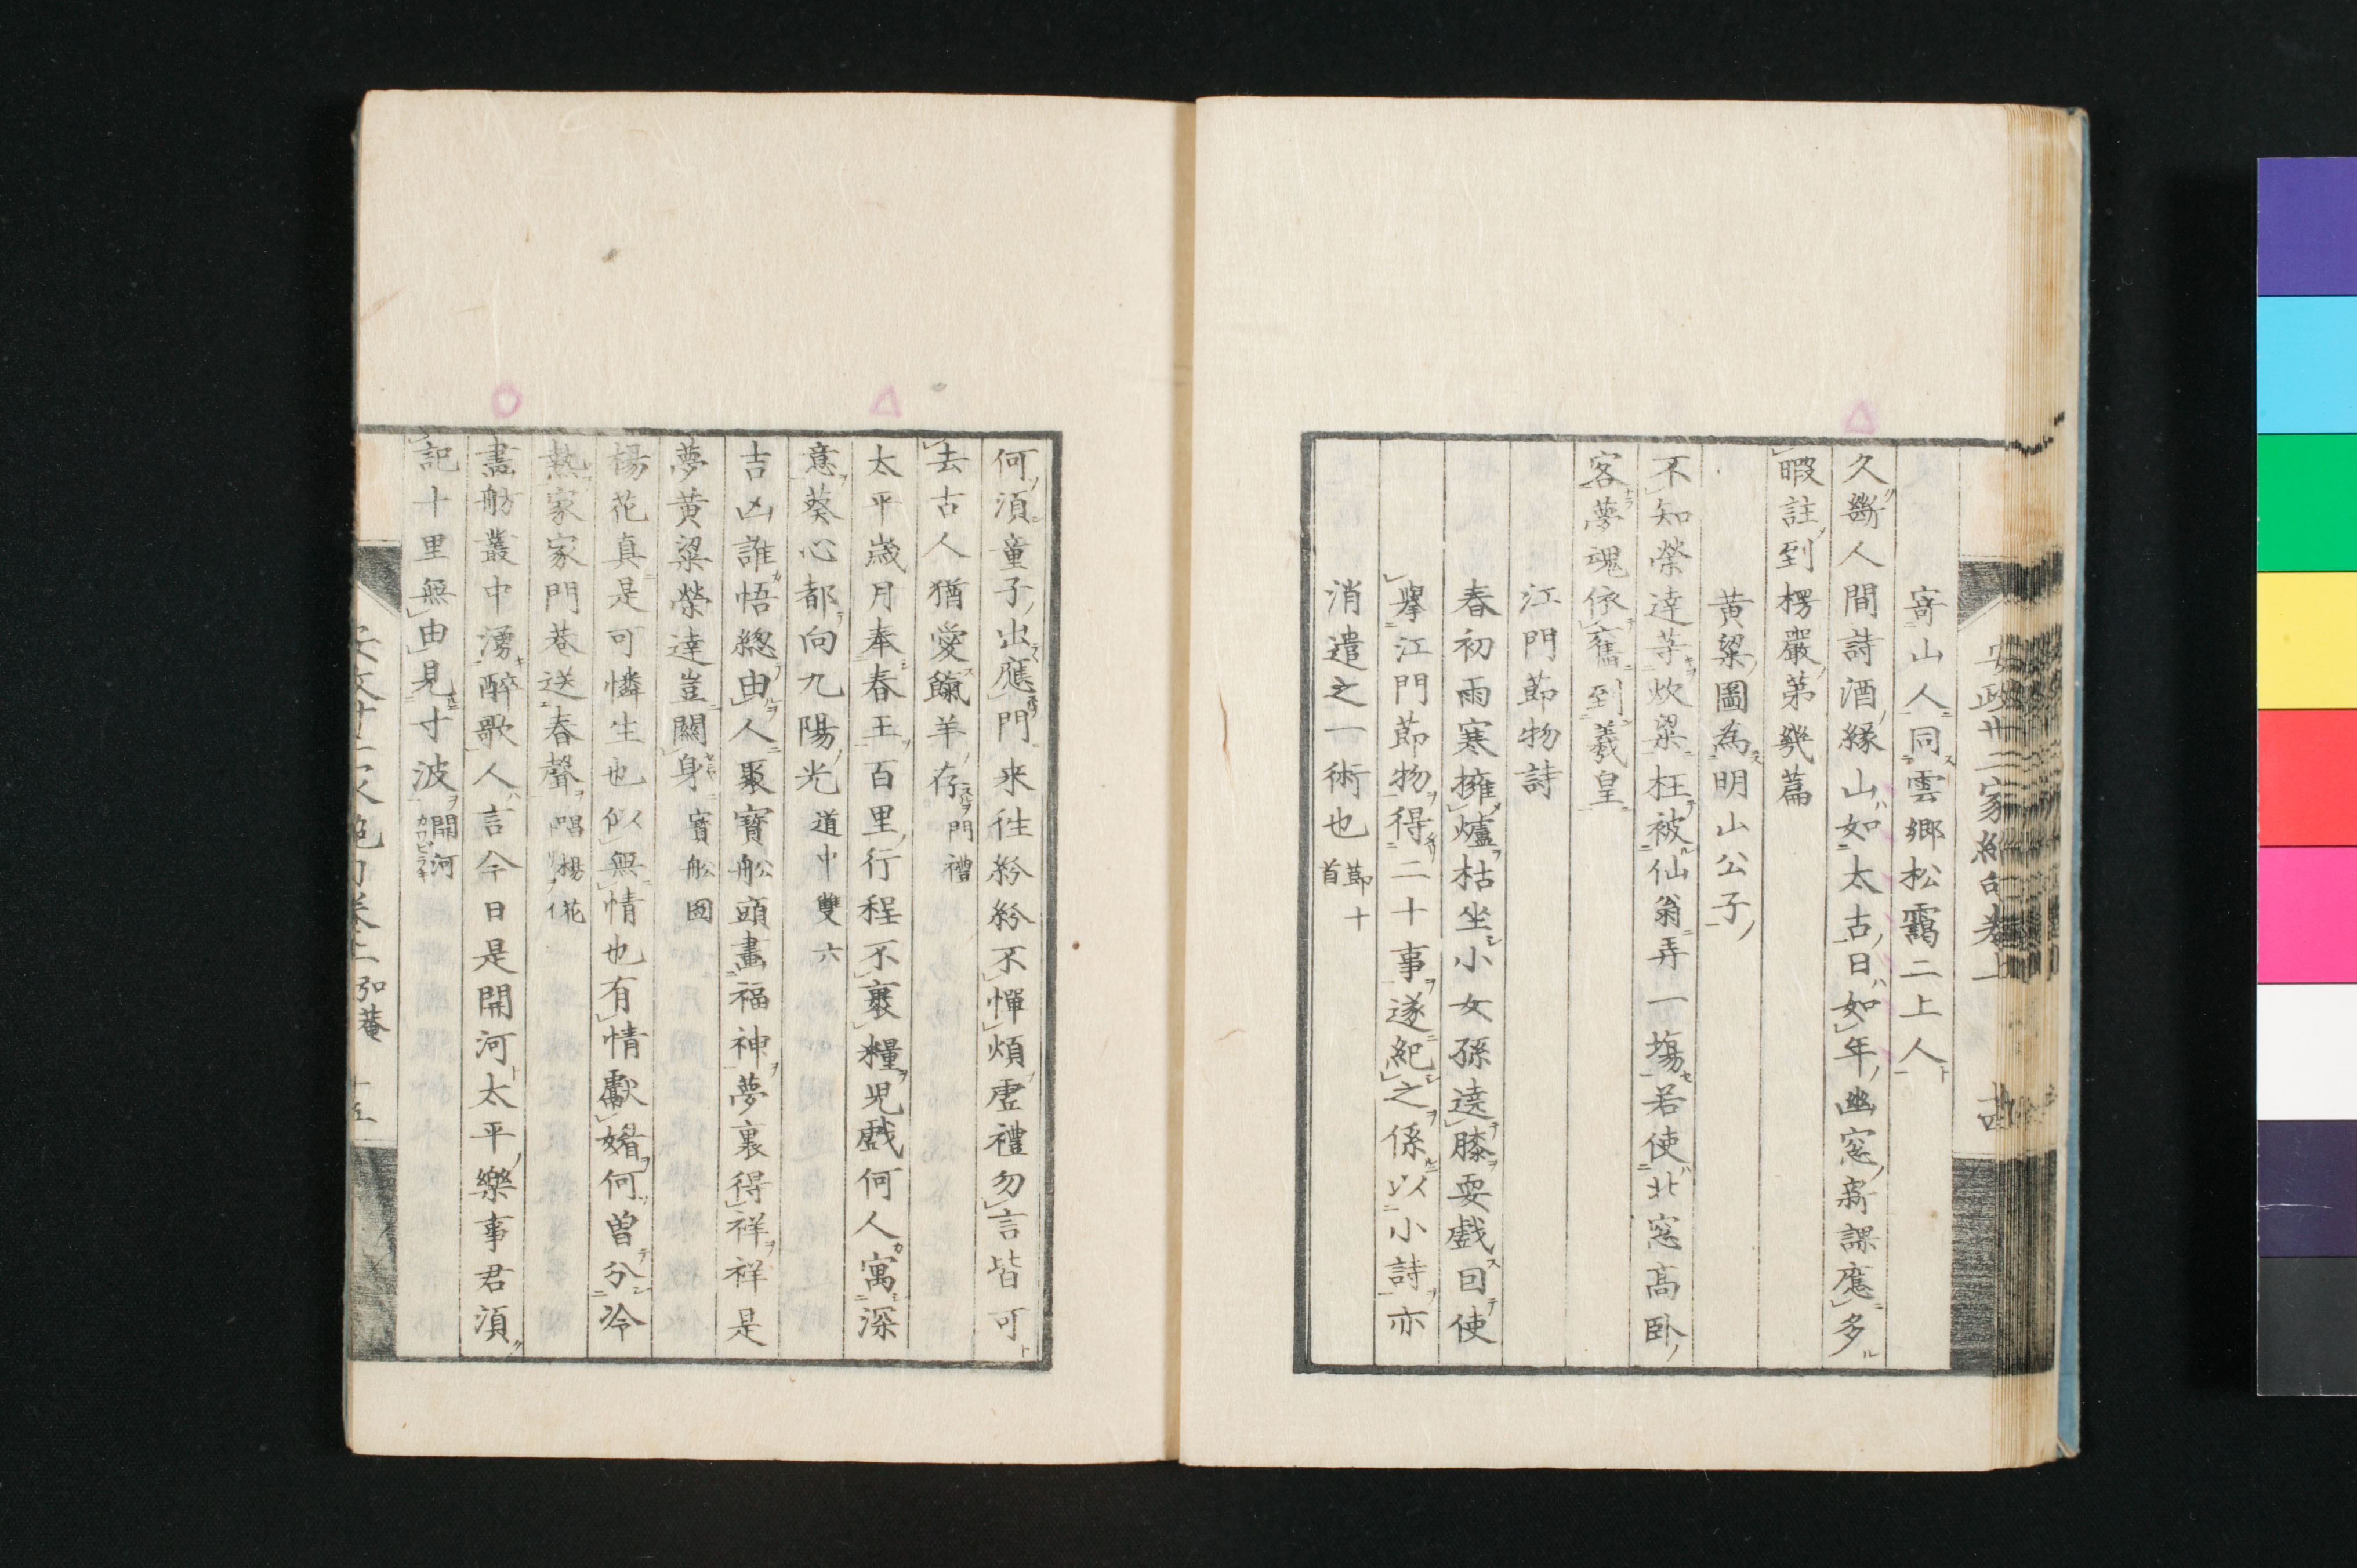 安政廿二家絶句卷上
寄山人同雲郷松靄二上人
久斷人間詩酒緣山如太古日如年幽窓新課應多
暇註到楞嚴第幾篇
黄粱圖為明山公子
不知榮達等炊粱枉被仙翁弄一塲若使北窓高卧
客夢魂依舊到羲皇
江門節物詩
春初雨寒擁爐枯坐小女孫遶膝耍戲因使
擧江門節物得二十事遂紀之係以小詩亦
消遣之一術也節十首
何須童子出應門来往紛紛不憚煩虛禮勿言皆可
去古人猶愛餼羊存門禮
太平歲月奉春王百里行程不裹糧児戲何人寓深
意葵心都向九陽光道中雙六
吉凶誰悟總由人聚寶舩頭畫福神夢裏得祥祥是
夢黄粱榮達豈關身寳舩図
楊花真是可憐生也似無情也有情獻媚何曽分冷
熱家家門巷送春聲唱楊花
畫舫叢中湧醉歌人言今日是開河太平樂事君須
記十里無由見寸波開河カワビラキ
弘菴 十五